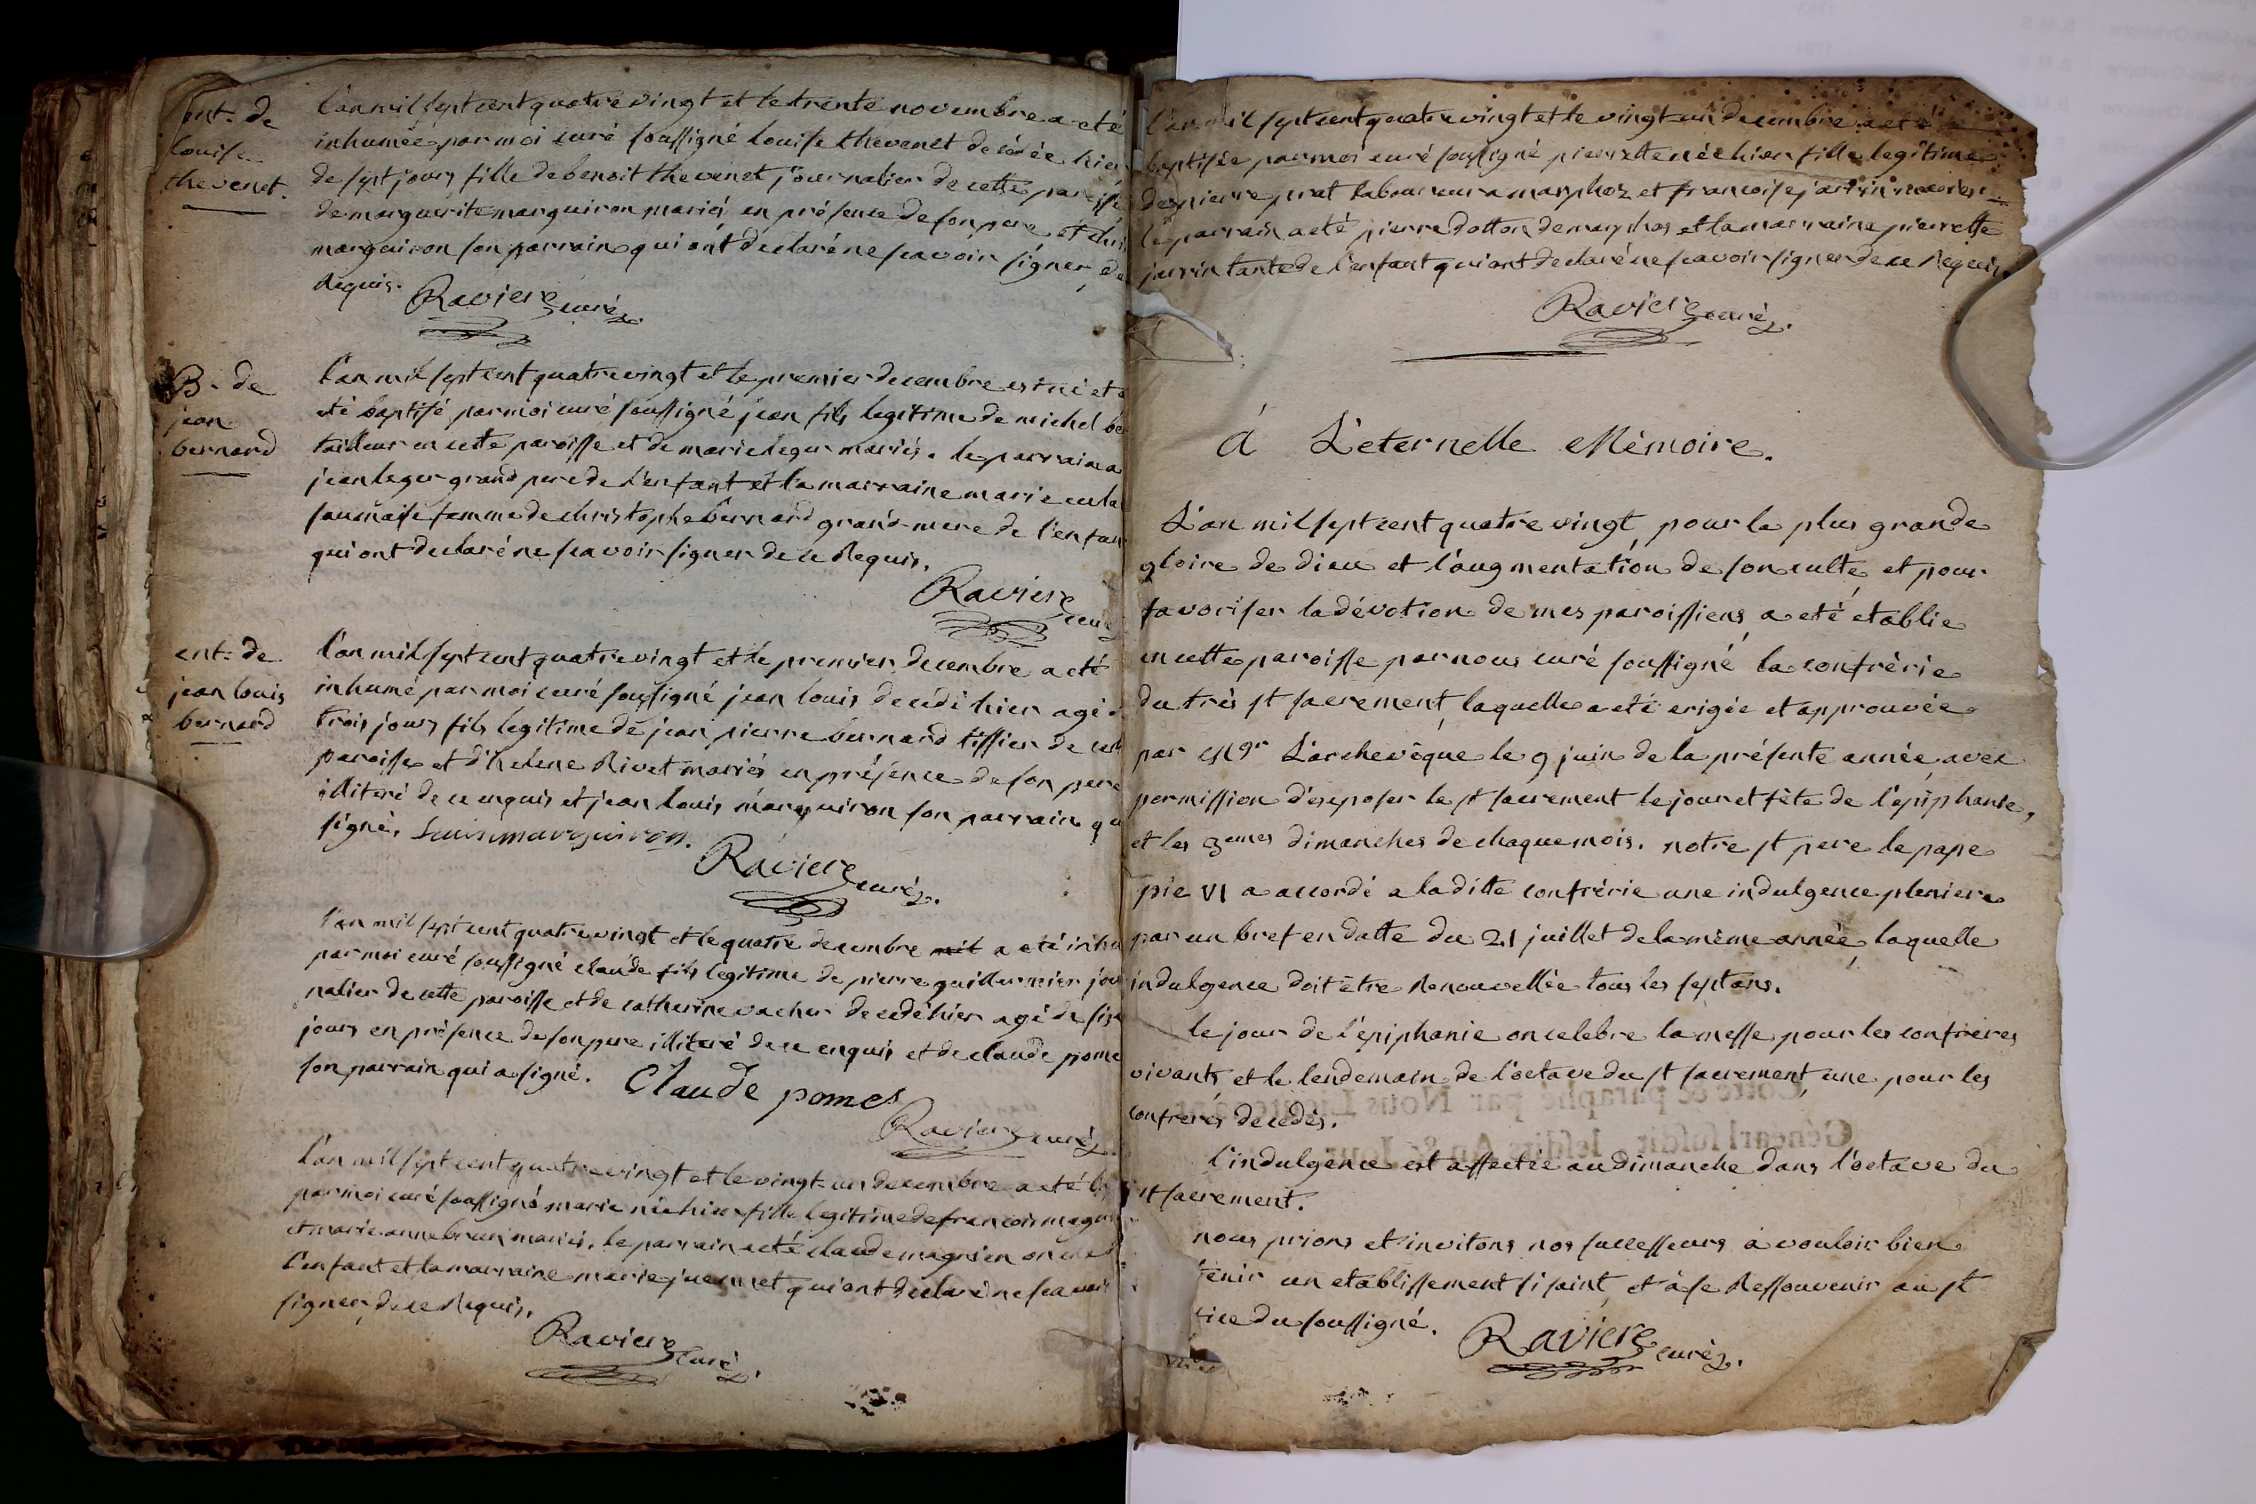 ent. de
louise
thevenet.
l'an mil sept cent quatre vingt et le trente novembre a eté
inhumée par moi curé soussigné louise thevenet decédée hier
de sept jours fille de benoit thevenet journalier de cette paroisse
de marguerite marguiron mariés en présence de son pere et
marguiron son parrain qui ont declaré ne scavoir signer de
Requis.
Raviere curé.
B. de
jean
bernard
l'an mil sept cent quatre vingt et le premier decembre est né et a
eté baptisé par moi curé soussigné jean fils legitime de michel
tailleur en cette paroisse et de marie leger mariés. le parrain a
jean leger grand pere de l'enfant et la marraine marie
femme de christophe bernard grand-mere de l'enfan
qui ont declaré ne scavoir signer de ce Requis.
Raviere curé
ent. de
jean louis
bernard
l'an mil sept cent quatre vingt et le premier decembre a eté
inhumé par moi curé soussigné jean louis decédé hier agé d
trois jours fils legitime de jean pierre bernard tissier de
paroisse et d'helene Rivet mariés en présence de son pere
illiteré de ce enquis et jean louis marguiron son parrain qu
signé. Louis marguiron.
Raviere curé.
l'an mil sept cent quatre vingt et le quatre decembre a eté inhu
par moi curé soussigné claude fils legitime de pierre guillermier jour
nalier de cette paroisse et de catherine vacher decedé hier agé de six
jours en présence de son pere illiteré de ce enquis et de claude pome
son parrain qui a signé. Claude pomel
Raviere curé
l'an mil sept cent quatre vingt et le vingt-un decembre a eté
par moi curé soussigné marie née hier fille legitime de francois magni
et marie anne brun mariés. le parrain a eté claude magnien oncle
l'enfant et la marraine marie juennet qui ont declaré ne scavoir
signer de ce Requis.
Raviere curé.
l'an mil sept cent quatre vingt et le vingt-un decembre a eté
baptisée par moi curé soussigné pierrette née hier fille legitime
de pierre prat laboureur a marphoz et francoise jarrin mariés
le parrain a eté pierre dotton de marphos et la marraine pierrette
jarrin tante de l'enfant qui ont declaré ne scavoir signer de ce Requis.
Raviere curé.
A L'eternelle Mémoire.
L'an mil sept cent quatre vingt, pour la plus grande
gloire de dieu et l'augmentation de son culte, et pour
favoriser la dévotion de mes paroissiens, a eté etablie
en cette paroisse par nous curé soussigné la confrérie
du très st sacrement, laquelle a eté erigée et approuvée
par Mgr L'archevêque le 9 juin de la présente année, avec
permission d'exposer le st sacrement le jour et fête de l'epiphanie,
et les 3emes dimanches de chaque mois. notre st pere le pape
pie VI a accordé a la ditte confrérie une indulgence pleniere
par un bref en datte du 21 juillet de la même année, laquelle
indulgence doit être Renouvellée tous les sept ans.
le jour de l'epiphanie on celebre la messe pour les confréres
vivants, et le lendemain de l'octave du st sacrement, une pour les
confrerés decedés.
l'indulgence est affectée au dimanche dans l'octave du
st sacrement.
nous prions et invitons nos successeurs à vouloir bien
tenir un etablissement si saint, et à se Ressouvenir au st
ice du soussigné.
Raviere curé.